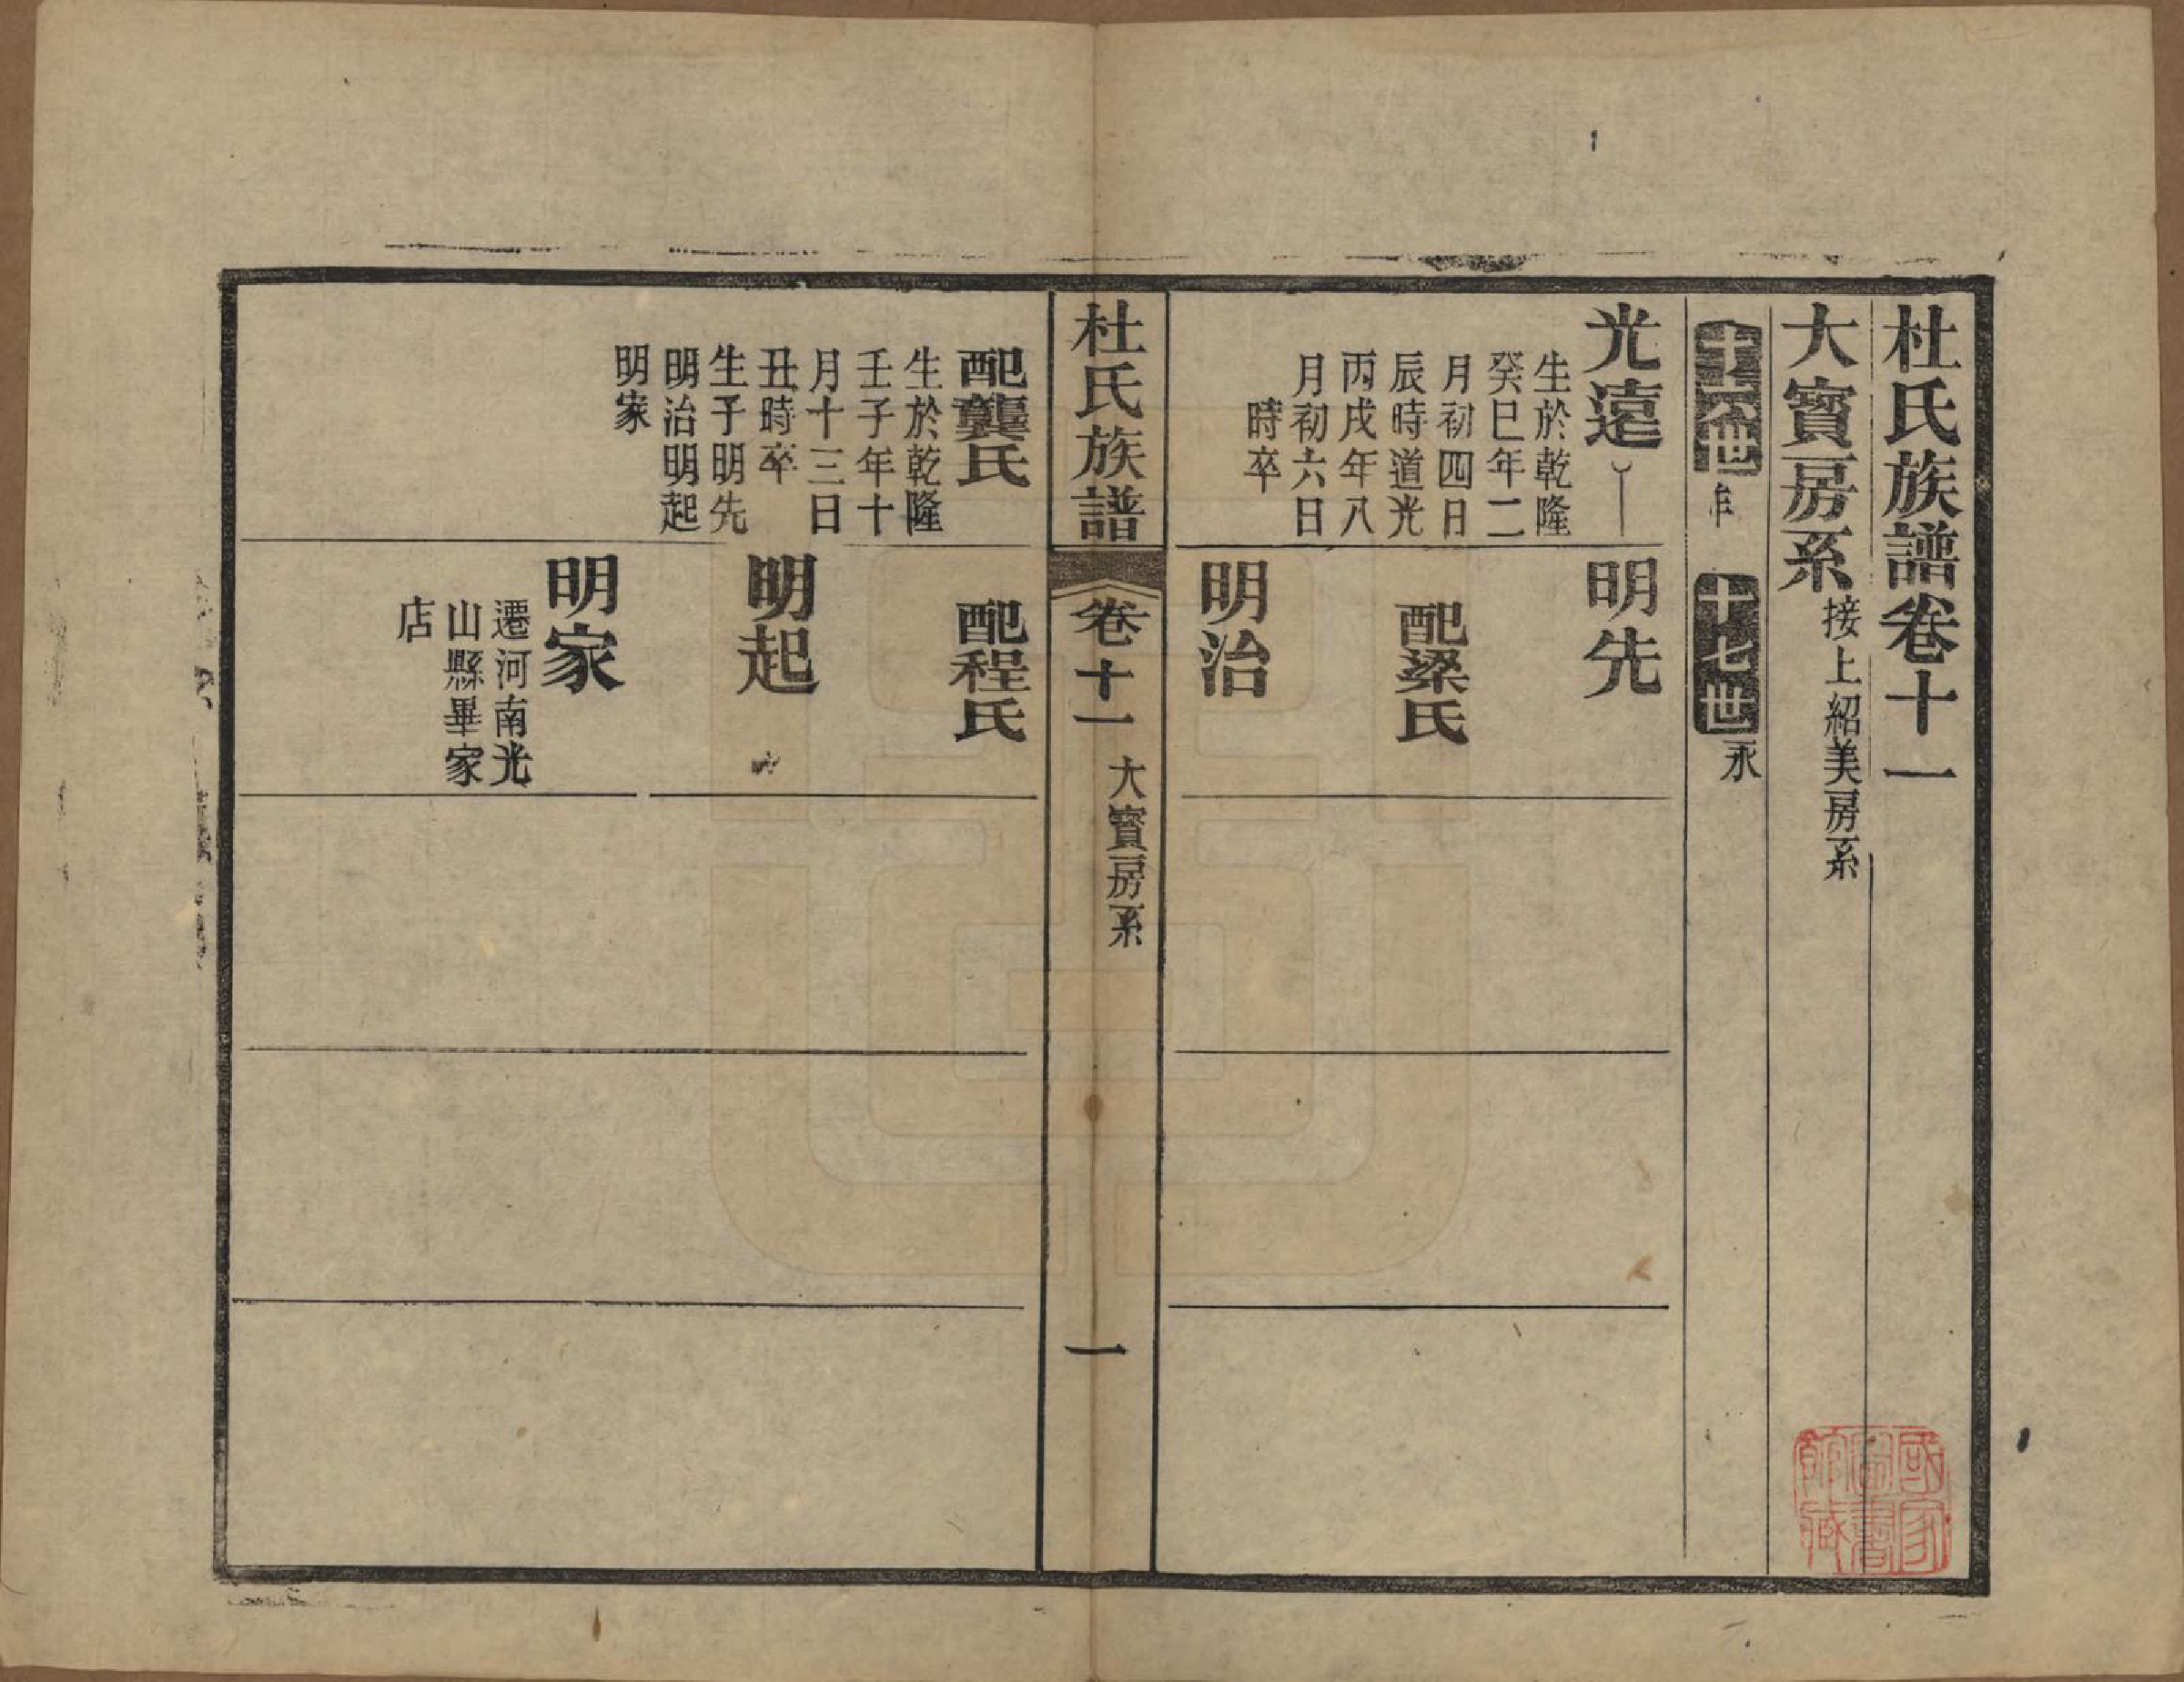 杜氏族譜卷十一
大寳房系 接上紹美房系
十六世
十七世 永
光遠
生於乾隆
癸巳年二
月初四日
辰時道光
丙戌年八
月初六日
時卒
明先
配梁氏
明治
杜氏族譜 卷十一 大寳房系 一
配龔氏
生於乾隆
壬子年十
月十三日
丑時卒
生子明先
明治明起
明家
配程氏
明起
明家
遷河南光
山縣畢家
店
國家
圖書
館藏